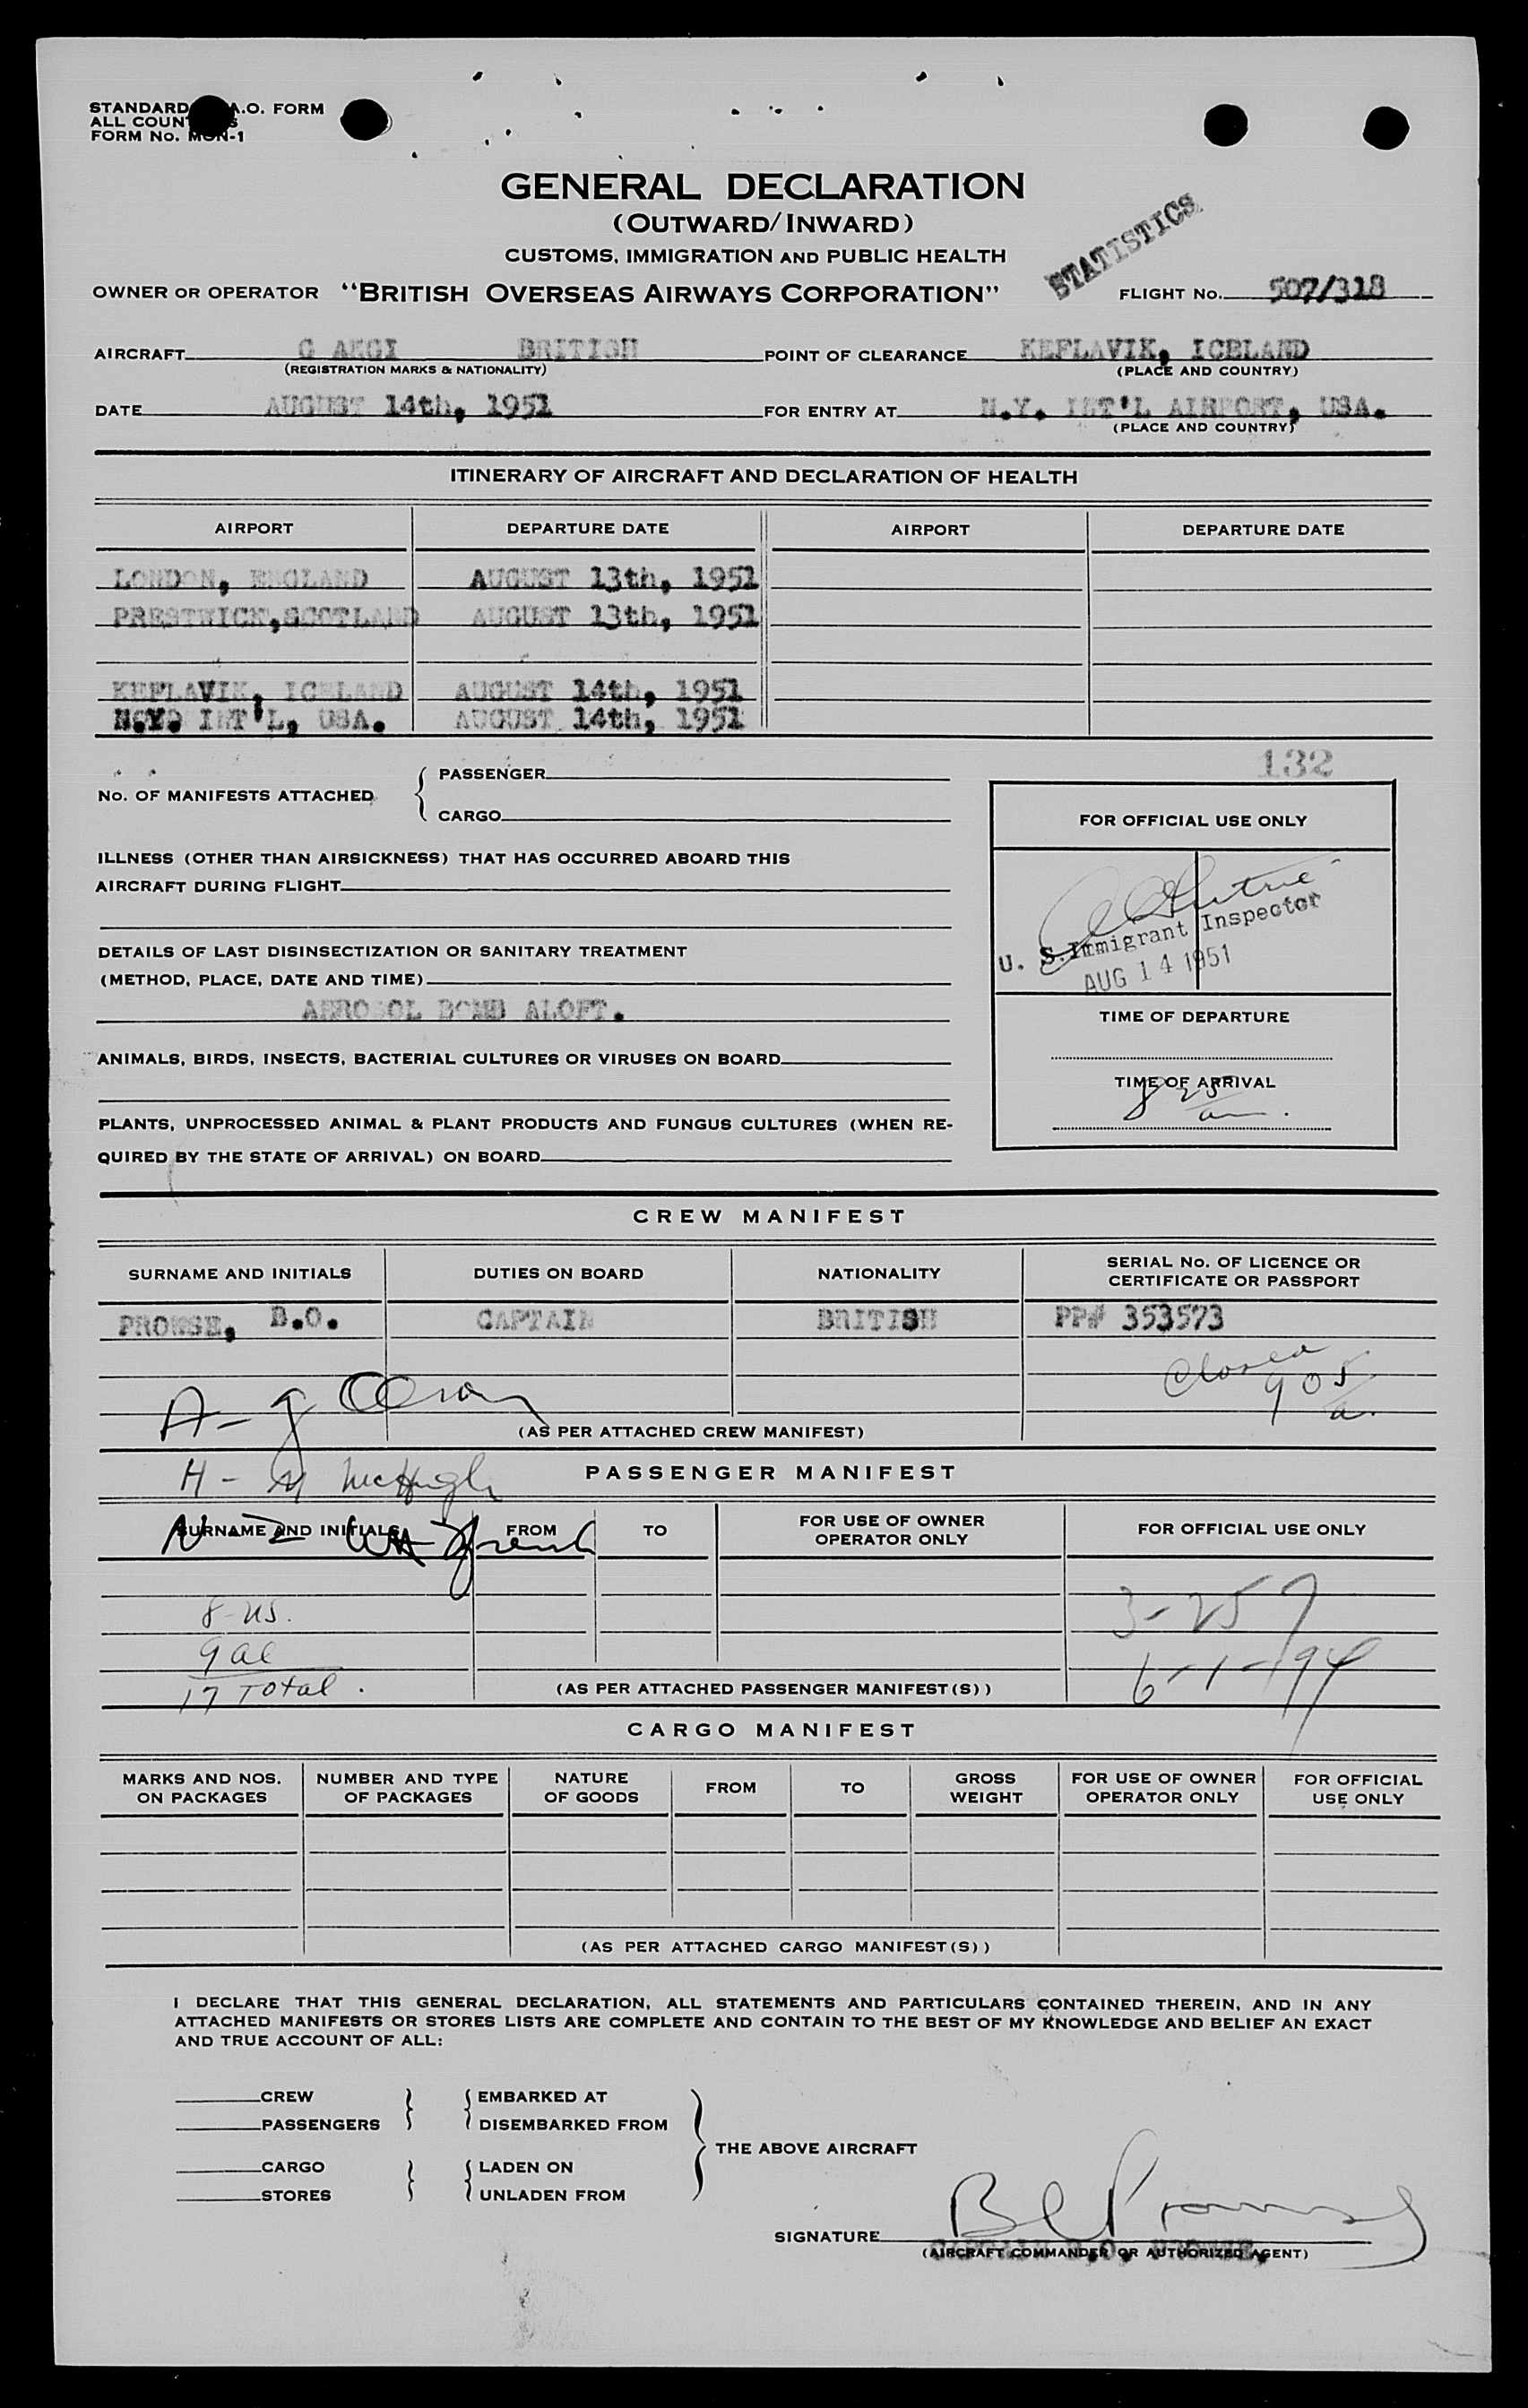 STANDARD A.O. FORM
ALL COUN S
FORM No. MON-1
GENERAL DECLARATION
(OUTWARD/INWARD)
CUSTOMS, IMMIGRATION AND PUBLIC HEALTH
STATISTICS
OWNER OR OPERATOR "BRITISH OVERSEAS AIRWAYS CORPORATION" FLIGHT No. 507/318
AIRCRAFT G AKGI BRITISH POINT OF CLEARANCE KEFLAVIK, ICELAND
(REGISTRATION MARKS & NATIONALITY) (PLACE AND COUNTRY)
DATE AUGUST 14th, 1951 FOR ENTRY AT N.Y. INT'L AIRPORT, USA.
(PLACE AND COUNTRY)
ITINERARY OF AIRCRAFT AND DECLARATION OF HEALTH
AIRPORT DEPARTURE DATE AIRPORT DEPARTURE DATE
LONDON, ENGLAND AUGUST 13th, 1951
PRESTWICK, SCOTLAND AUGUST 13th, 1951
KEFLAVIK, ICELAND AUGUST 14th, 1951
N.Y. INT'L, USA. AUGUST 14th, 1951
132
No. OF MANIFESTS ATTACHED { PASSENGER
CARGO
FOR OFFICIAL USE ONLY
ILLNESS (OTHER THAN AIRSICKNESS) THAT HAS OCCURRED ABOARD THIS
AIRCRAFT DURING FLIGHT
U. S. Immigrant Inspector
AUG 14 1951
DETAILS OF LAST DISINSECTIZATION OR SANITARY TREATMENT
(METHOD, PLACE, DATE AND TIME)
AEROSOL BOMB ALOFT.
TIME OF DEPARTURE
ANIMALS, BIRDS, INSECTS, BACTERIAL CULTURES OR VIRUSES ON BOARD
TIME OF ARRIVAL
8 25
a
PLANTS, UNPROCESSED ANIMAL & PLANT PRODUCTS AND FUNGUS CULTURES (WHEN RE-
QUIRED BY THE STATE OF ARRIVAL) ON BOARD
CREW MANIFEST
SURNAME AND INITIALS DUTIES ON BOARD NATIONALITY SERIAL No. OF LICENCE OR
CERTIFICATE OR PASSPORT
PROWSE, B.O. CAPTAIN BRITISH PP# 353573
Closed
905
a.
A-
(AS PER ATTACHED CREW MANIFEST)
H - M McHugh
PASSENGER MANIFEST
SURNAME AND INITIALS FROM TO FOR USE OF OWNER
OPERATOR ONLY FOR OFFICIAL USE ONLY
8-US. 3-257
9 al
17 Total. 6-1-194
(AS PER ATTACHED PASSENGER MANIFEST(S))
CARGO MANIFEST
MARKS AND NOS.
ON PACKAGES NUMBER AND TYPE
OF PACKAGES NATURE
OF GOODS FROM TO GROSS
WEIGHT FOR USE OF OWNER
OPERATOR ONLY FOR OFFICIAL
USE ONLY
(AS PER ATTACHED CARGO MANIFEST(S))
I DECLARE THAT THIS GENERAL DECLARATION, ALL STATEMENTS AND PARTICULARS CONTAINED THEREIN, AND IN ANY
ATTACHED MANIFESTS OR STORES LISTS ARE COMPLETE AND CONTAIN TO THE BEST OF MY KNOWLEDGE AND BELIEF AN EXACT
AND TRUE ACCOUNT OF ALL:
CREW EMBARKED AT
PASSENGERS DISEMBARKED FROM
THE ABOVE AIRCRAFT
CARGO LADEN ON
STORES UNLADEN FROM
SIGNATURE
CAPTAIN B.O. PROWSE,
(AIRCRAFT COMMANDER OR AUTHORIZED AGENT)